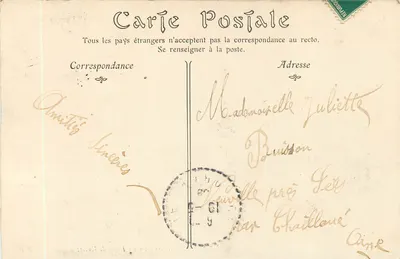 Carte Postale
Tous les pays étrangers n'acceptent pas la correspondance au recto.
Se renseigner à la poste.
Correspondance
Adresse
Amitiés
Sincères
Mademoiselle Juliette
Buisson
Neuville près Séez
par Chailloué
Orne